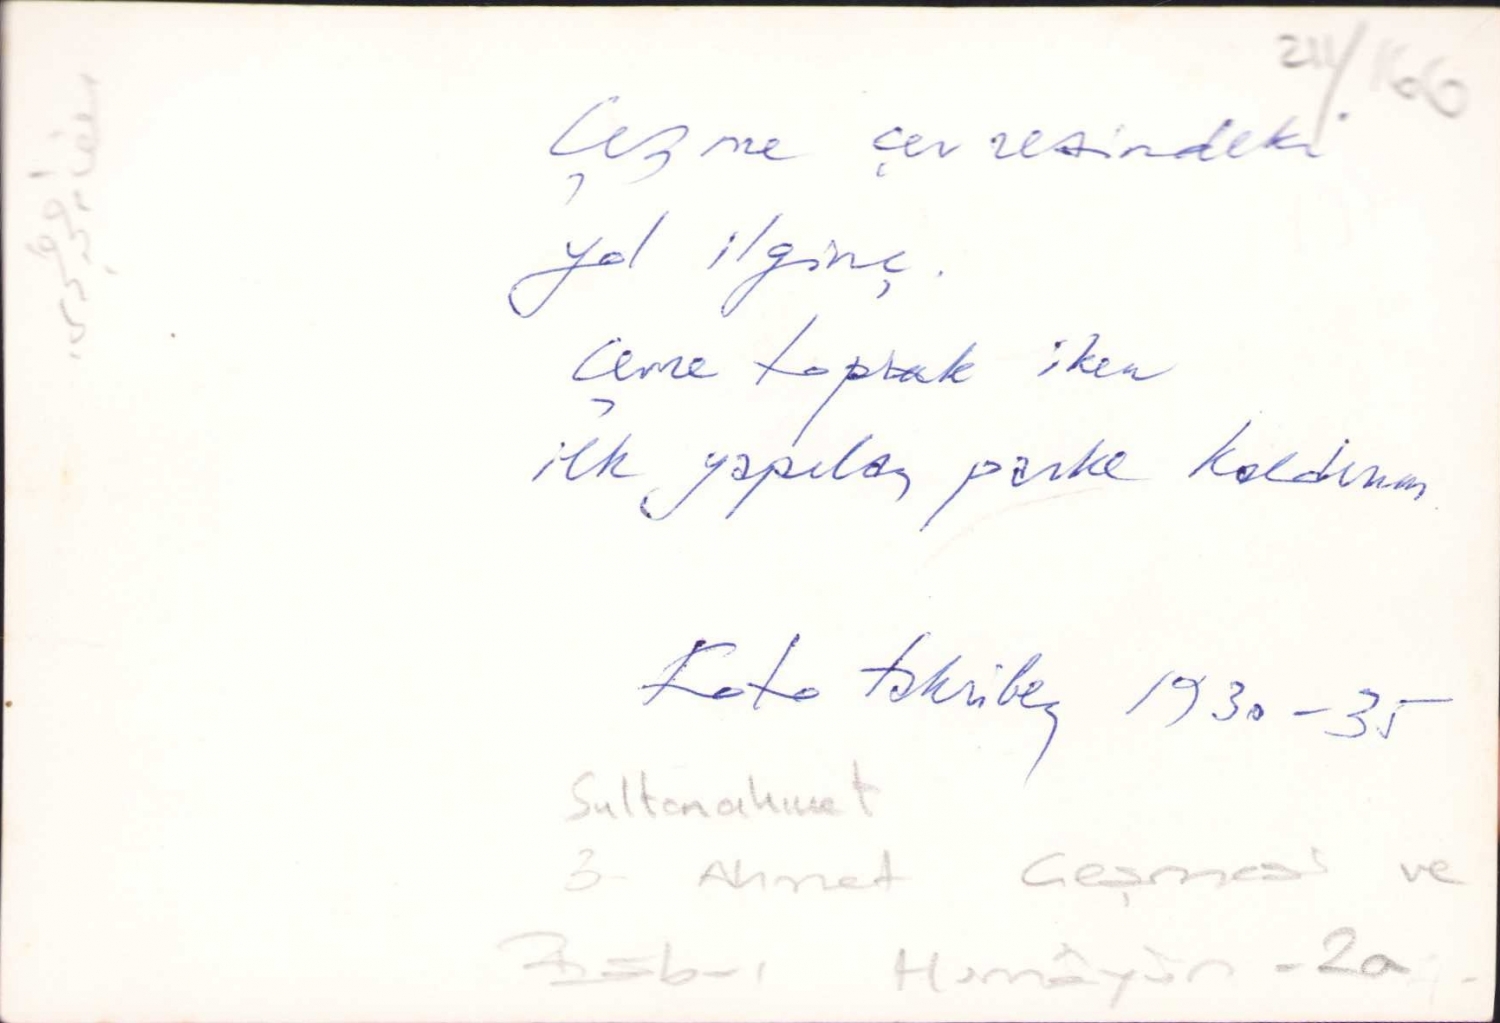 211/166
Çeşme çevresindeki
yol ilginç.
Çevre toprak iken
ilk yapılan parke kaldırım
Foto takriben 1930-35
Sultanahmet
3 Ahmet Çeşmesi ve
Bâb-ı Hümâyûn - 2a